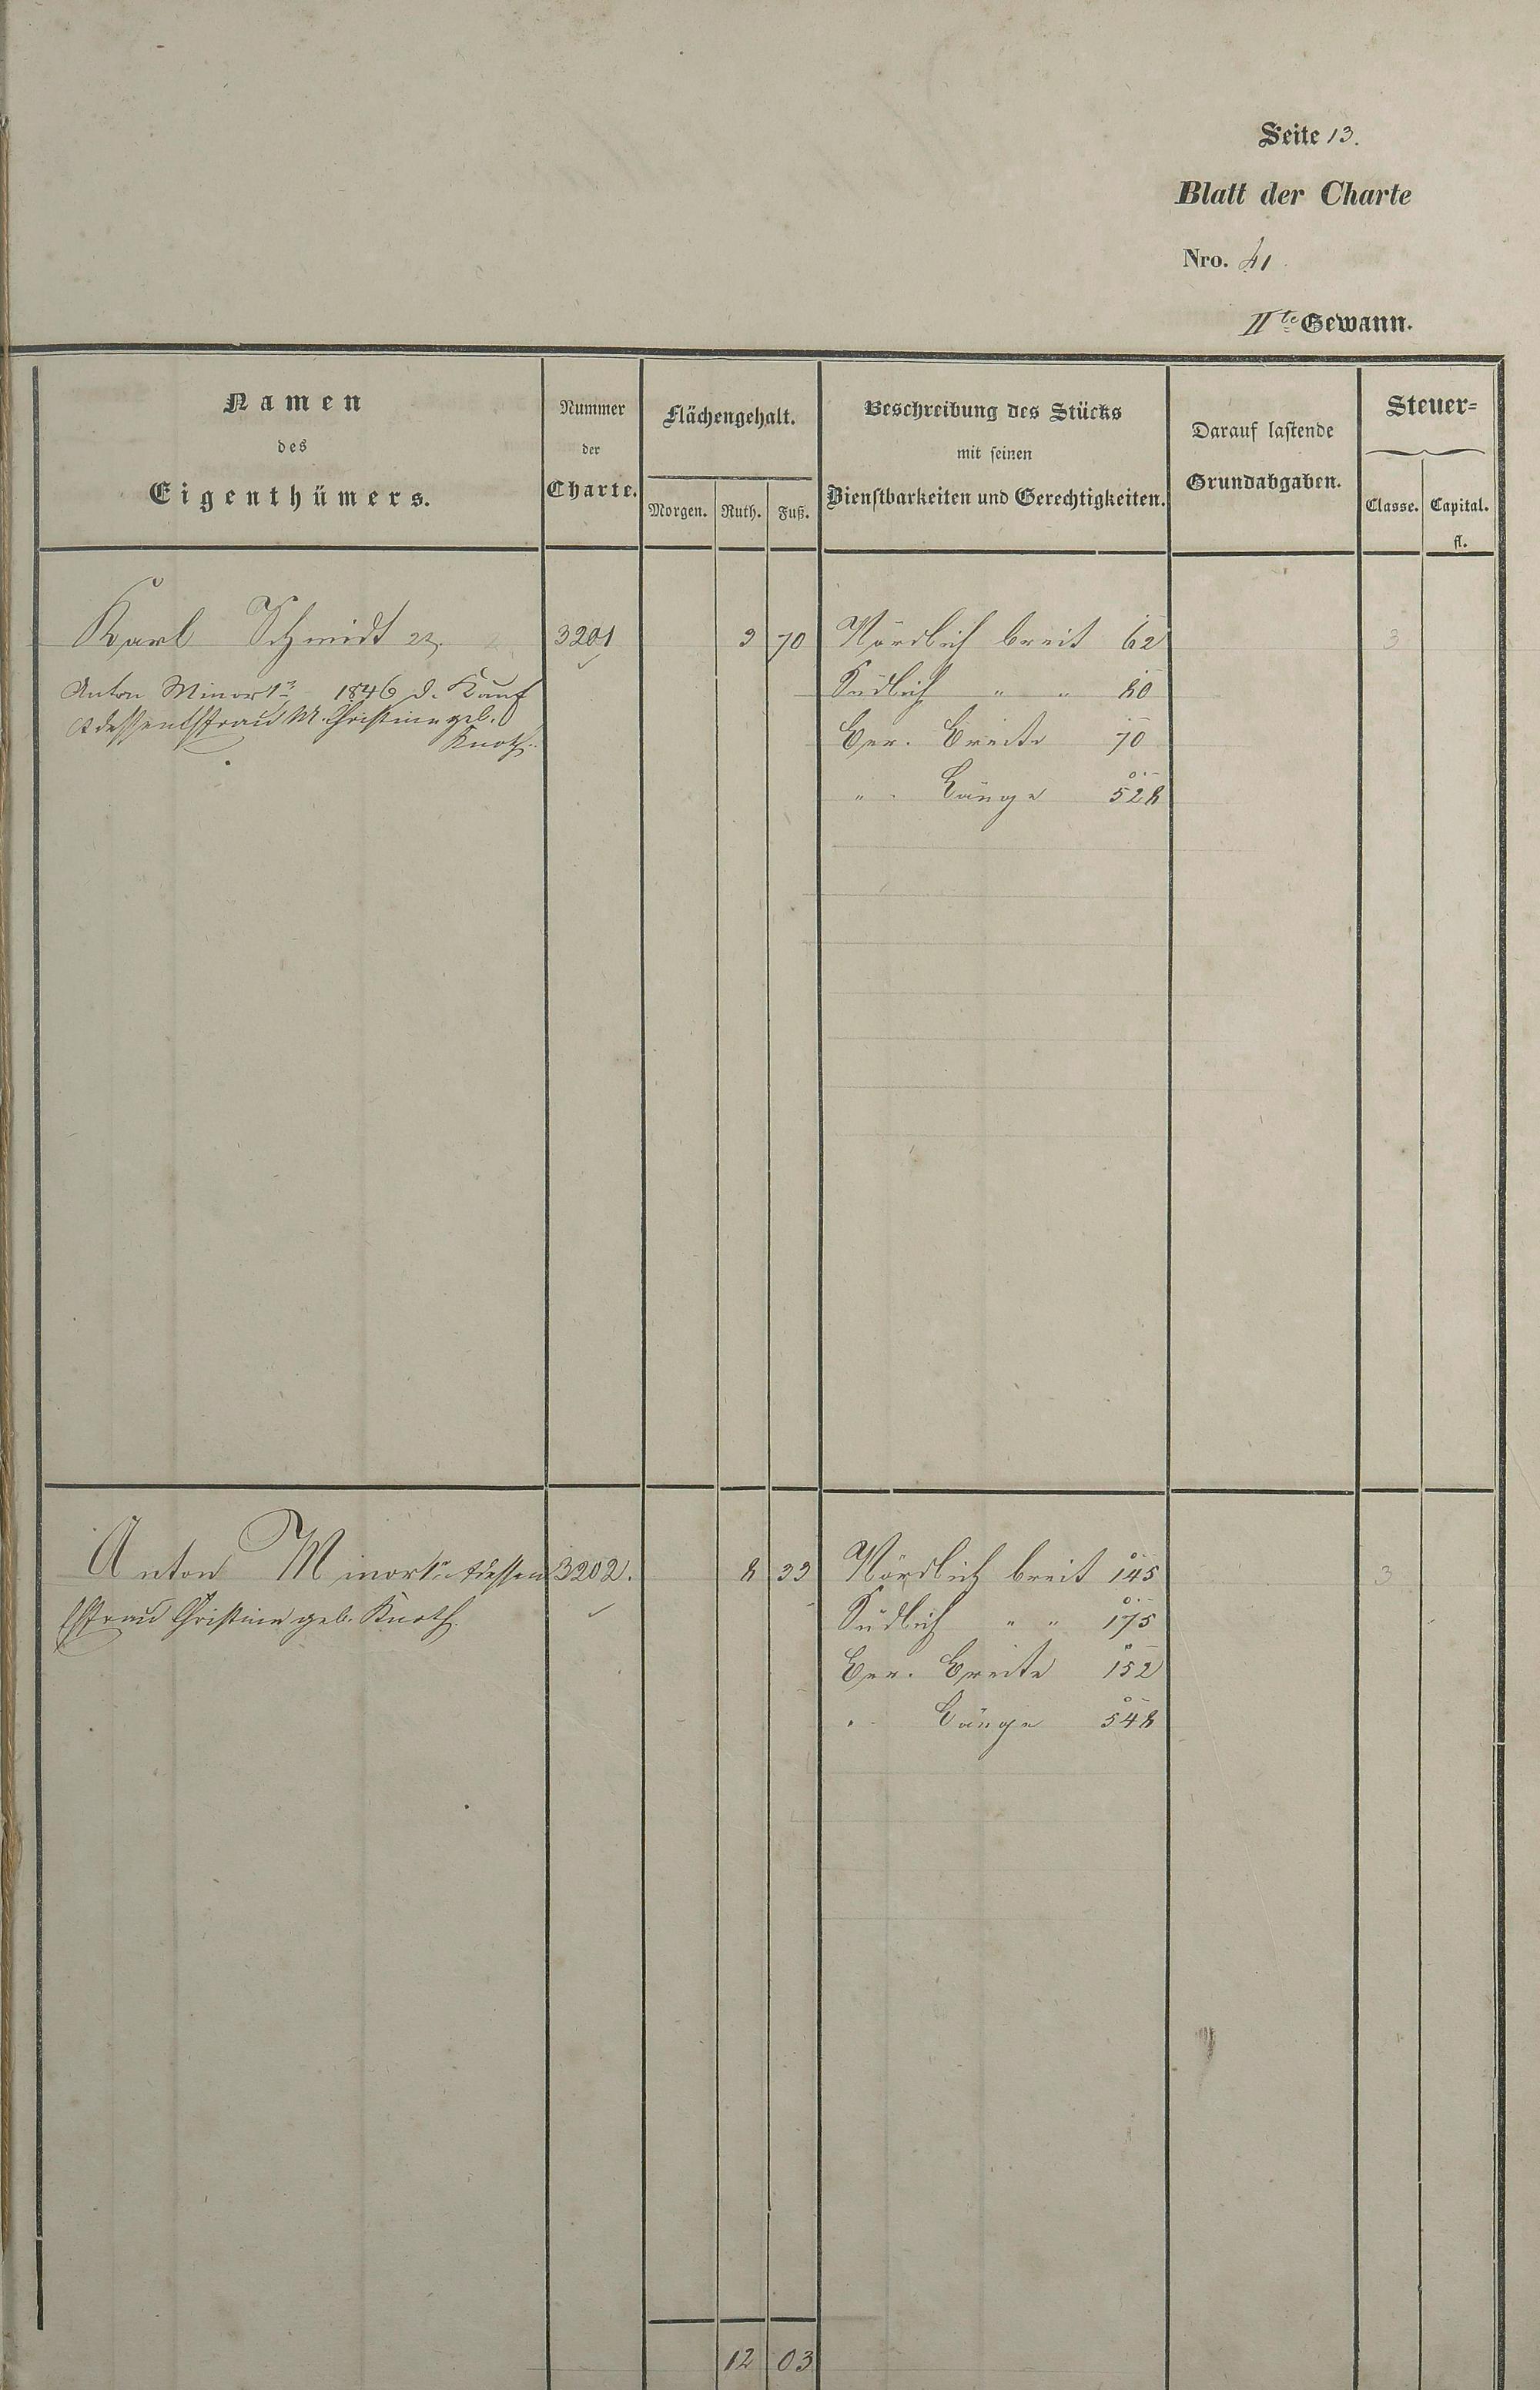 Seite 13.
Blatt der Charte
Nro. 41
IIte Gewann.
Namen
des
Eigenthümers.
Nummer
der
Charte.
Flächengehalt.
Morgen. Ruth. Fuß.
Beschreibung des Stücks
mit seinen
Dienstbarkeiten und Gerechtigkeiten.
Darauf lastende
Grundabgaben.
Steuer-
Classe. Capital.
fl.
Karl Schmidt 2r. 3201 3 70 Nördlich breit 62 3
Anton Minor 1r 1846 d. Kauf
& dessen Ehfrau M. Christine geb.
Knoth.
Südlich " " 80
Ger. Breite 70
" Länge 528
Anton Minor 1r & dessen 3202. 8 33 Nördlich breit 145 3
Ehfrau Christine geb. Knoth.
Südlich " " 175
Ger. Breite 152
" Länge 548
12 03